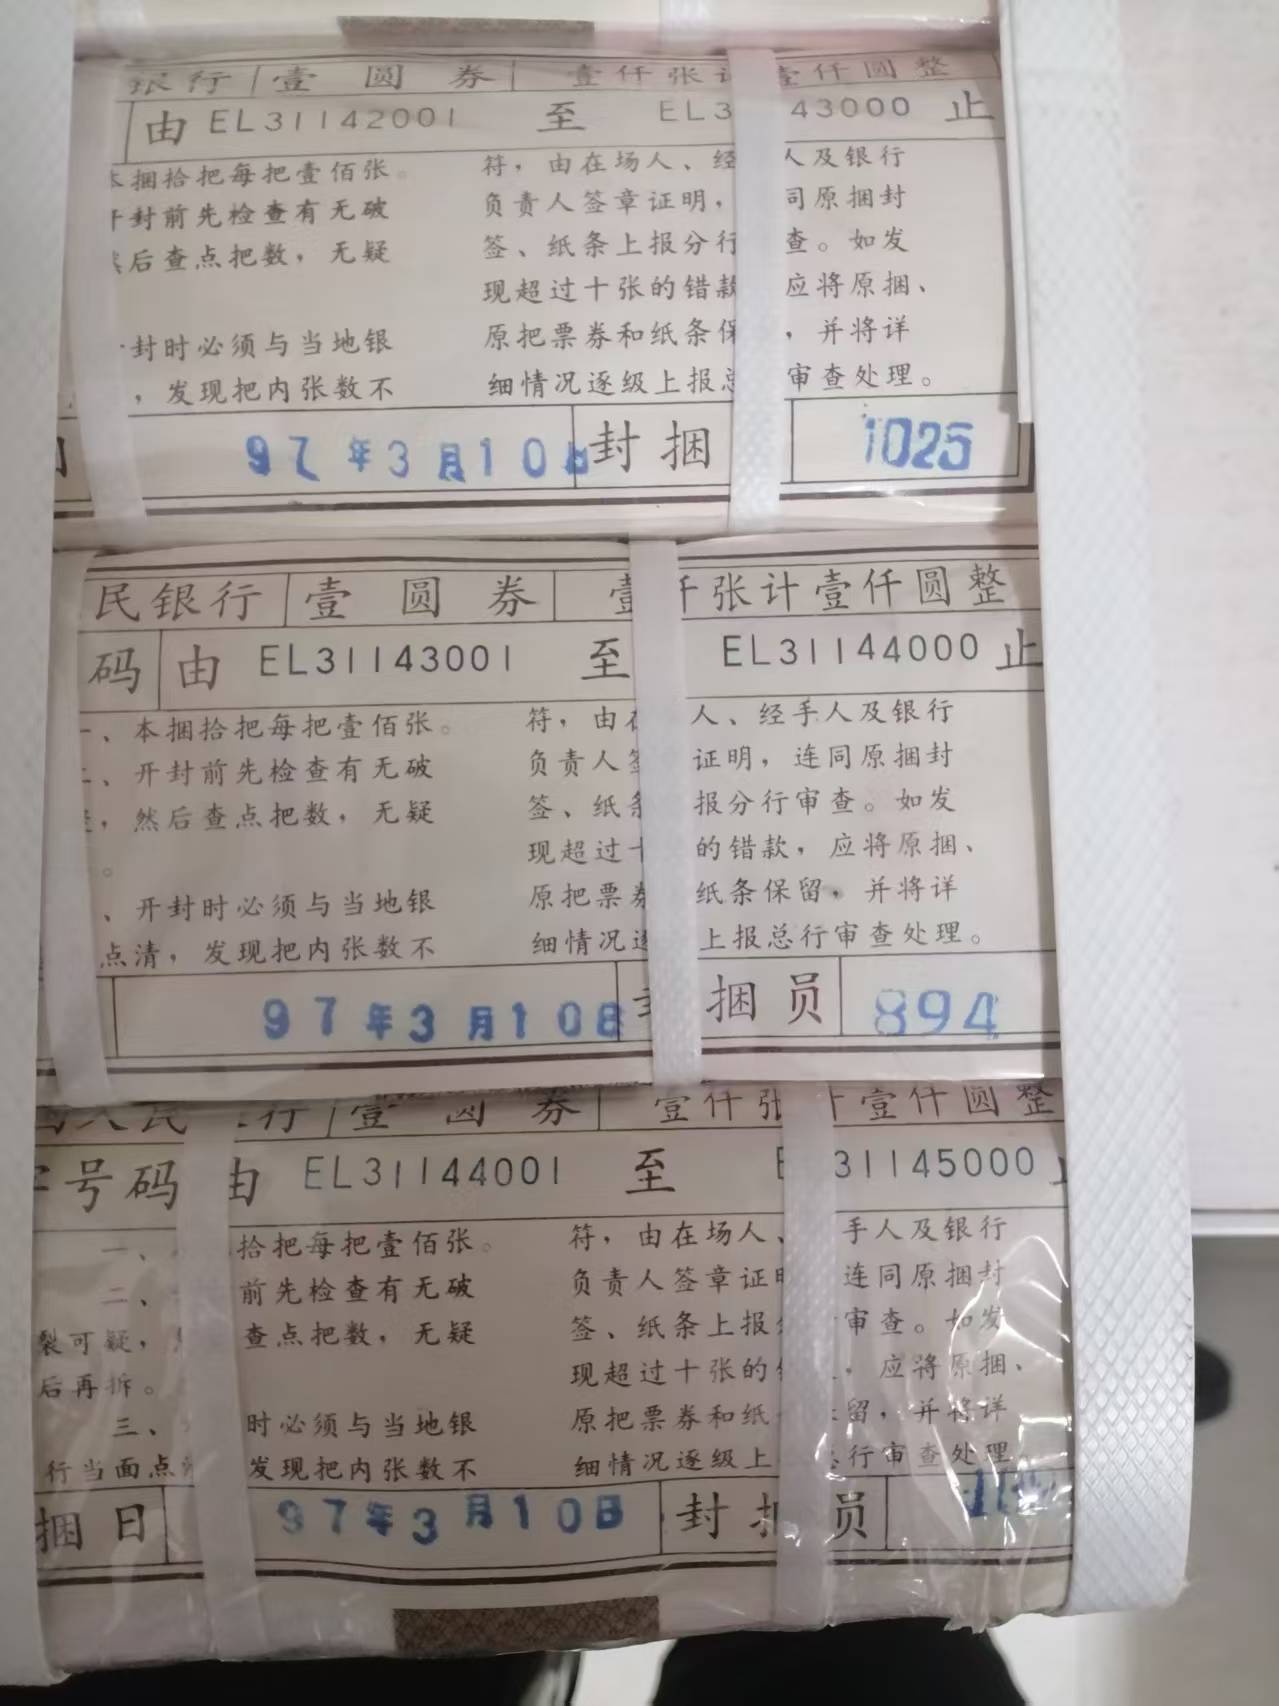 银行 壹圆券 壹仟张计壹仟圆整
由 EL31142001 至 EL3 43000 止
本捆拾把每把壹佰张。
开封前先检查有无破
然后查点把数，无疑
封时必须与当地银
，发现把内张数不
符，由在场人、经 人及银行
负责人签章证明， 同原捆封
签、纸条上报分行 查。如发
现超过十张的错款 应将原捆、
原把票券和纸条保 ，并将详
细情况逐级上报总 审查处理。
97年3月10日 封捆 1025
民银行 壹圆券 壹仟张计壹仟圆整
码 由 EL31143001 至 EL31144000 止
一、本捆拾把每把壹佰张。
二、开封前先检查有无破
，然后查点把数，无疑
。
、开封时必须与当地银
点清，发现把内张数不
符，由在 人、经手人及银行
负责人签 证明，连同原捆封
签、纸条 报分行审查。如发
现超过十 的错款，应将原捆、
原把票券 纸条保留，并将详
细情况逐 上报总行审查处理。
97年3月10日 封捆员 894
国人民 行 壹圆券 壹仟张 壹仟圆整
字号码 由 EL31144001 至 E 31145000 止
一、 拾把每把壹佰张。
二、 前先检查有无破
裂可疑， 查点把数，无疑
后再拆。
三、 时必须与当地银
行当面点 发现把内张数不
符，由在场人、 手人及银行
负责人签章证明 连同原捆封
签、纸条上报 审查。如发
现超过十张的 ，应将原捆、
原把票券和纸 留，并将详
细情况逐级上 行审查处理
捆日 97年3月10日 封捆员